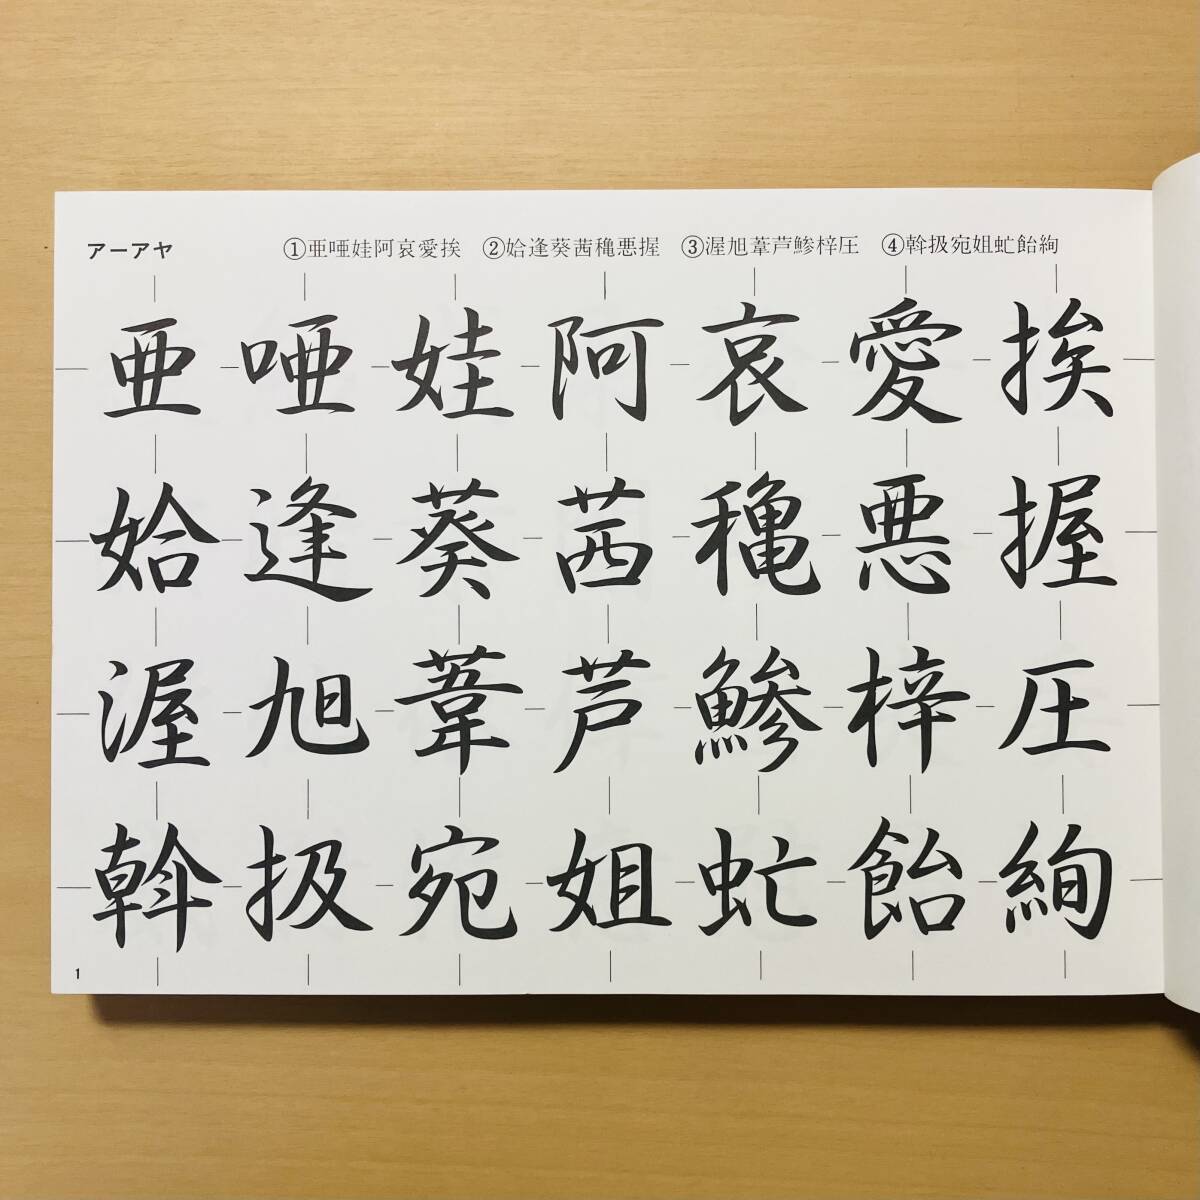 アーアヤ ①亜唖娃阿哀愛挨 ②姶逢葵茜穐悪握 ③渥旭葦芦鯵梓圧 ④斡扱宛姐虻飴絢
亜唖娃阿哀愛挨
姶逢葵茜穐悪握
渥旭葦芦鯵梓圧
斡扱宛姐虻飴絢
1